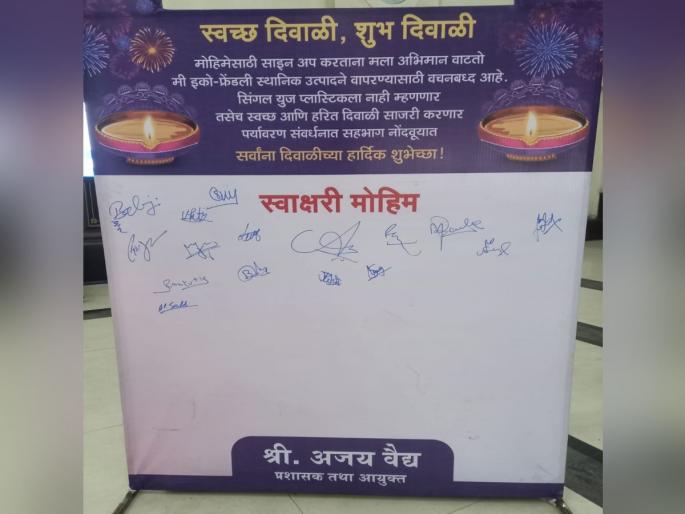 स्वच्छ दिवाळी, शुभ दिवाळी
मोहिमेसाठी साइन अप करताना मला अभिमान वाटतो
मी इको-फ्रेंडली स्थानिक उत्पादने वापरण्यासाठी वचनबध्द आहे.
सिंगल युज प्लास्टिकला नाही म्हणणार
तसेच स्वच्छ आणि हरित दिवाळी साजरी करणार
पर्यावरण संवर्धनात सहभाग नोंदवूयात
सर्वांना दिवाळीच्या हार्दिक शुभेच्छा!
स्वाक्षरी मोहिम
श्री. अजय वैद्य
प्रशासक तथा आयुक्त